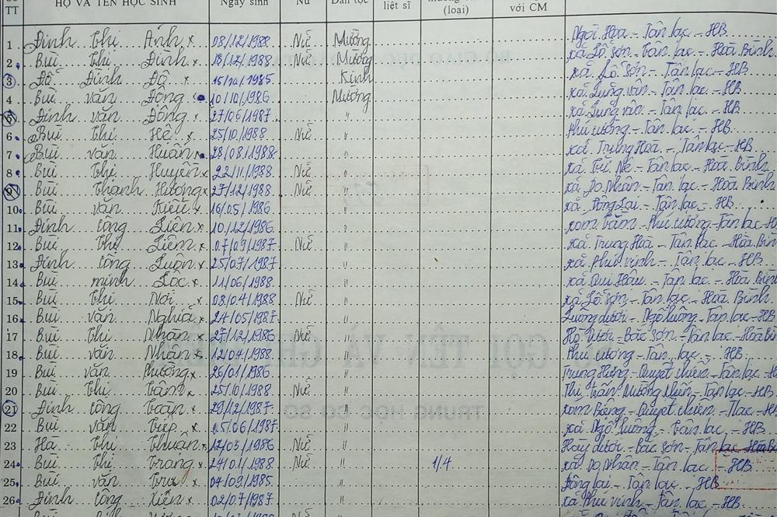 TT HỌ VÀ TÊN HỌC SINH Ngày sinh Nữ Dân tộc liệt sĩ (loại) với CM
1 Đinh Thị Ánh x 08/12/1988 Nữ Mường Ngòi Hoa - Tân lạc - HB
2 Bùi Thị Đinh x 18/12/1988 Nữ Mường xã Lỗ sơn - Tân lạc - Hòa Bình
3 Đỗ Đình Độ x 1985 Kinh xã Lỗ sơn - Tân lạc - HB
4 Bùi văn Đông 10/10/1986 Mường xã Lung vân - Tân lạc - HB
5 Đinh văn Đông x 27/06/1987 " xã Lung vân - Tân lạc - HB
6 Bùi Thị Hê x 25/10/1988 Nữ " Phú cường - Tân lạc - HB
7 Bùi văn Huân 28/08/1988 " xã Trung Hoà - Tân lạc - HB
8 Bùi Thị Huyền x 22/11/1988 Nữ " xã - Tân lạc - Hoà Bình
9 Bùi Thanh Hương x 27/12/1988 Nữ " xã Do Nhân - Tân lạc - Hoà Bình
10 Bùi văn Kiều x 16/05/1986 " xã Đông Lai - Tân lạc - HB
11 Đinh công Liên x 10/12/1986 " xóm Phú cường - Tân lạc
12 Bùi Thị Liêm x 07/09/1987 Nữ " xã Trung Hoà - Tân lạc - Hòa Bình
13 Đinh công Luân x 25/07/1987 " xã Phú vinh - Tân lạc - HB
14 Bùi minh Lộc x 11/06/1988 " xã Qui Hậu - Tân lạc - Hòa Bình
15 Bùi Thị Nơi x 08/04/1988 Nữ " xã Lỗ sơn - Tân lạc - Hoà Bình
16 Bùi văn Nghĩa x 24/05/1987 " Luông dưới - Ngổ luông - Tân lạc - HB
17 Bùi Thị Nhân x 27/12/1986 Nữ " Dưới - Bắc sơn - Tân lạc - Hòa Bình
18 Bùi văn Nhân x 12/04/1988 " Phú cường - Tân lạc - HB
19 Bùi văn Phương x 26/01/1986 " Trung Hưng - Quyết chiến - Tân lạc - HB
20 Bùi Thị Tâm x 25/10/1988 Nữ " Thị trấn Mường Khến - Tân lạc - HB
21 Đinh công Toàn x 29/12/1987 " xóm Bằng - Quyết chiến - Tlac - HB
22 Bùi văn Tiệp x 15/06/1987 " xã Ngổ luông - Tân lạc - HB
23 Hà Thị Thuận x 12/03/1986 Nữ " dưới - Bắc sơn - Tân lạc - Hòa B
24 Bùi Thị Trang x 24/01/1988 Nữ " 1/4 xã Do Nhân - Tân lạc - HB
25 Bùi văn x 04/09/1985 " Đông lai - Tân lạc - HB
26 Đinh công Xiên x 02/07/1987 " xã Phú vinh - Tân lạc - HB